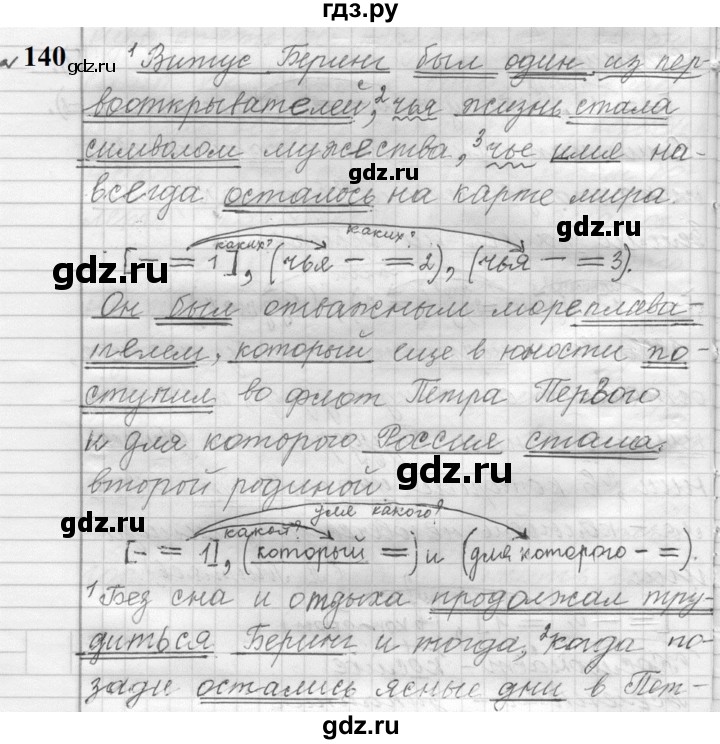 гдз.ру
№ 140 ¹Витус Беринг был один из пер-
gdz.ru
вооткрывателей, ²чья жизнь стала
символом мужества, ³чье имя на-
gdz.ru
всегда осталось на карте мира.
gdz.ru
каких? каких?
[– = 1], (чья – = 2), (чья – = 3).
Он был отважным мореплава-
телем, который еще в юности по-
ступил во флот Петра Первого
и для которого Россия стала
gdz.ru
второй родиной
gdz.ru
какой? для какого?
[– = 1], (который =) и (для которого – =).
¹Без сна и отдыха продолжал тру-
диться Беринг и тогда, ²когда по-
зади остались ясные дни в Пет-
gdz.ru
gdz.ru